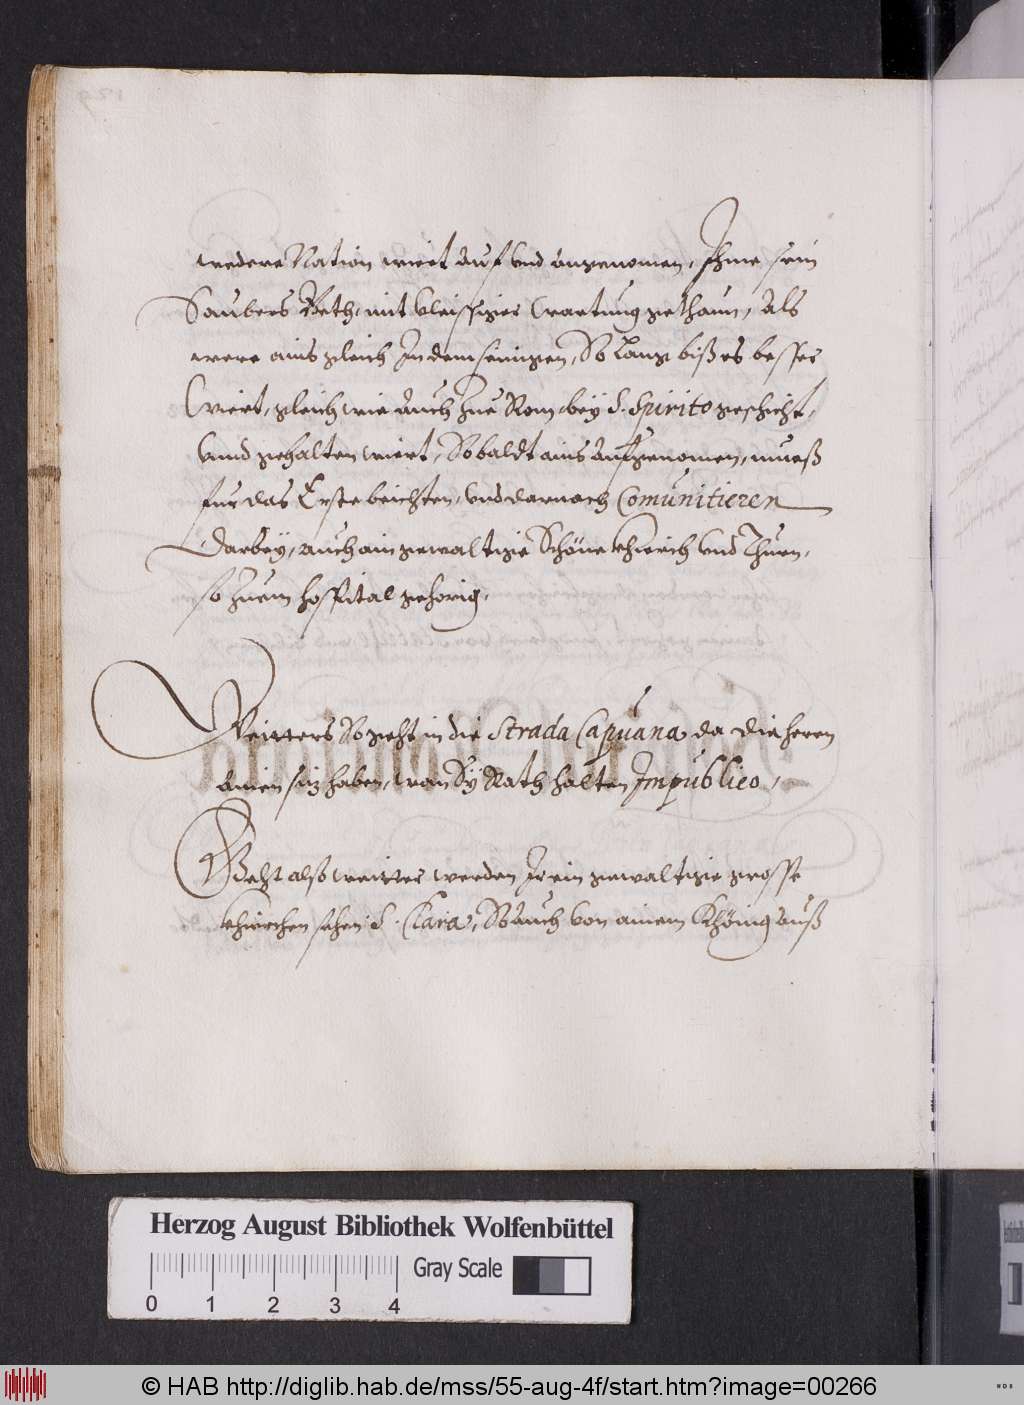 wedere Nation wiert auf vnd angenomen, Ihme sein
Saubers Beth, mit vleissiger Wartung gethann, Als
were ains gleich In dem seinigen, So Lang biß es besser
Wiert, gleich wie auch Zue Rom bey S. Spirito geschicht,
Vnnd gehalten wiert, So baldt ains Aufgenomen, mueß
für das Erste beichten, vnd darnach Comunitieren
Darbey, auch ain gewaltige Schöne khierch Vnd Thurn,
so Zuem hospital gehorig,
Weitters So geht in die Strada Capuana da die herren
ainen siz haben, wan Sy Rath halten Impublico,
Geht alß weitter werden Ir ein gewaltige grosse
khierchen sehen S. Clara, So auch von ainem Khönig auß
Herzog August Bibliothek Wolfenbüttel
Gray Scale
0 1 2 3 4
© HAB http://diglib.hab.de/mss/55-aug-4f/start.htm?image=00266